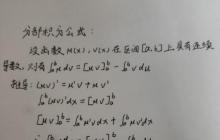 分部积分公式：
设函数 u(x), v(x) 在区间 [a,b] 上具有连续
导数, 则有 ∫ₐᵇ u dv = [uv]ₐᵇ - ∫ₐᵇ v du
推导: (uv)' = u'v + uv'
∫ₐᵇ (uv)' dx = [uv]ₐᵇ
[uv]ₐᵇ = ∫ₐᵇ u'v dx + ∫ₐᵇ uv' dx